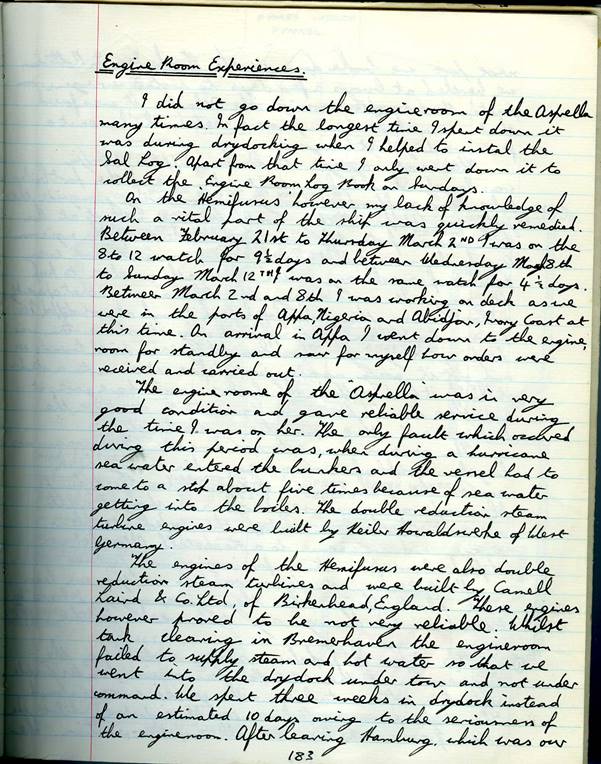 Engine Room Experiences.
I did not go down the engineroom of the Asprella
many times. In fact the longest time I spent down it
was during drydocking when I helped to instal the
Sal Log. Apart from that time I only went down it to
collect the Engine Room Log Book on Sundays.
On the Hemifusus however my lack of knowledge of
such a vital part of the ship was quickly remedied.
Between February 21st to Thursday March 2ND I was on the
8 to 12 watch for 9½ days and between Wednesday 8th
to Sunday March 12TH I was on the same watch for 4½ days.
Between March 2nd and 8th I was working on deck as we
were in the ports of Appa, Nigeria and Abidjan, Ivory Coast at
this time. On arrival in Appa I went down to the engine,
room for standby and saw for myself how orders were
received and carried out.
The engine roome of the "Asprella" was in very
good condition and gave reliable service during
the time I was on her. The only fault which occured
during this period was, when during a hurricane
sea water entered the bunkers and the vessel had to
come to a stop about five times because of sea water
getting into the boiles. The double reduction steam
turbine engines were built by Keiler Howaldswerke of West
Germany.
The engines of the Hemifusus were also double
reduction steam turbines and were built by Camell
Laird & Co. Ltd, of Birkenhead, England. These engines
however proved to be not very reliable. Whilst
tank cleaning in Bremerhaven the engineroom
failed to supply steam and hot water so that we
went into the drydock under tow and not under
command. We spent three weeks in drydock instead
of an estimated 10 days owing to the seriousness of
the engineroom. After leaving Hamburg, which was our
183